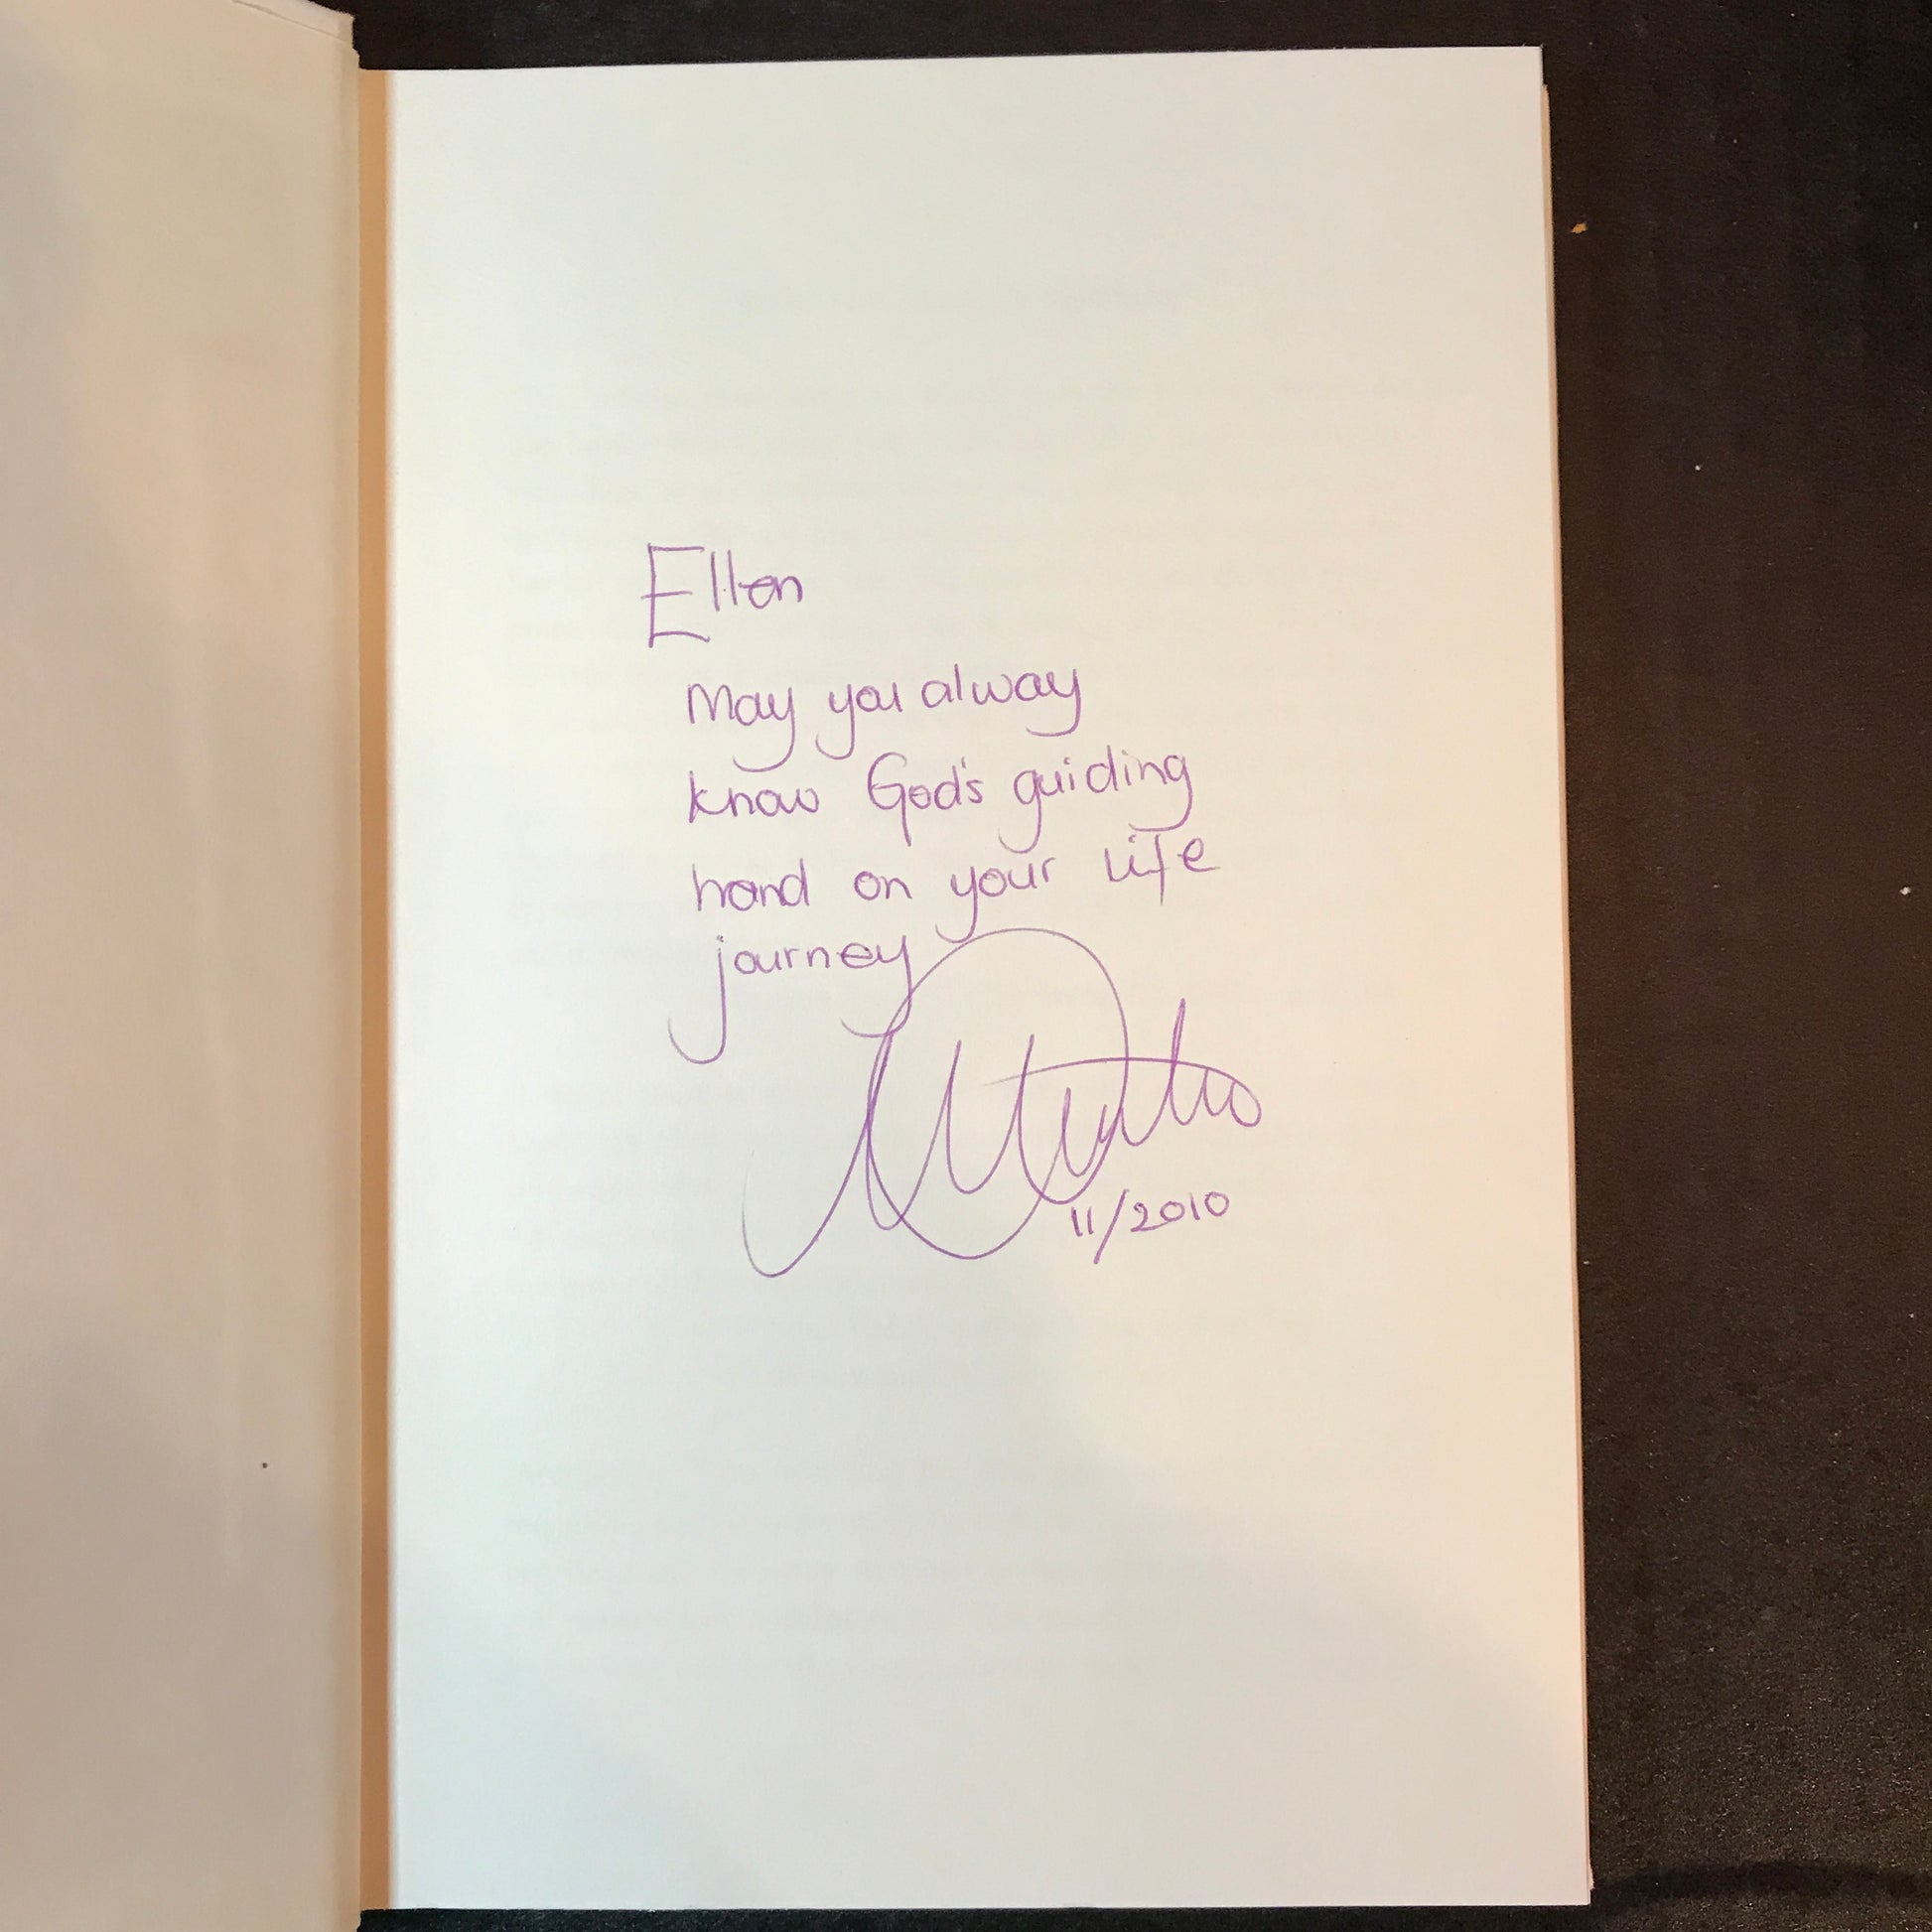 Ellen
May you alway
know God's guiding
hand on your life
journey
11/2010